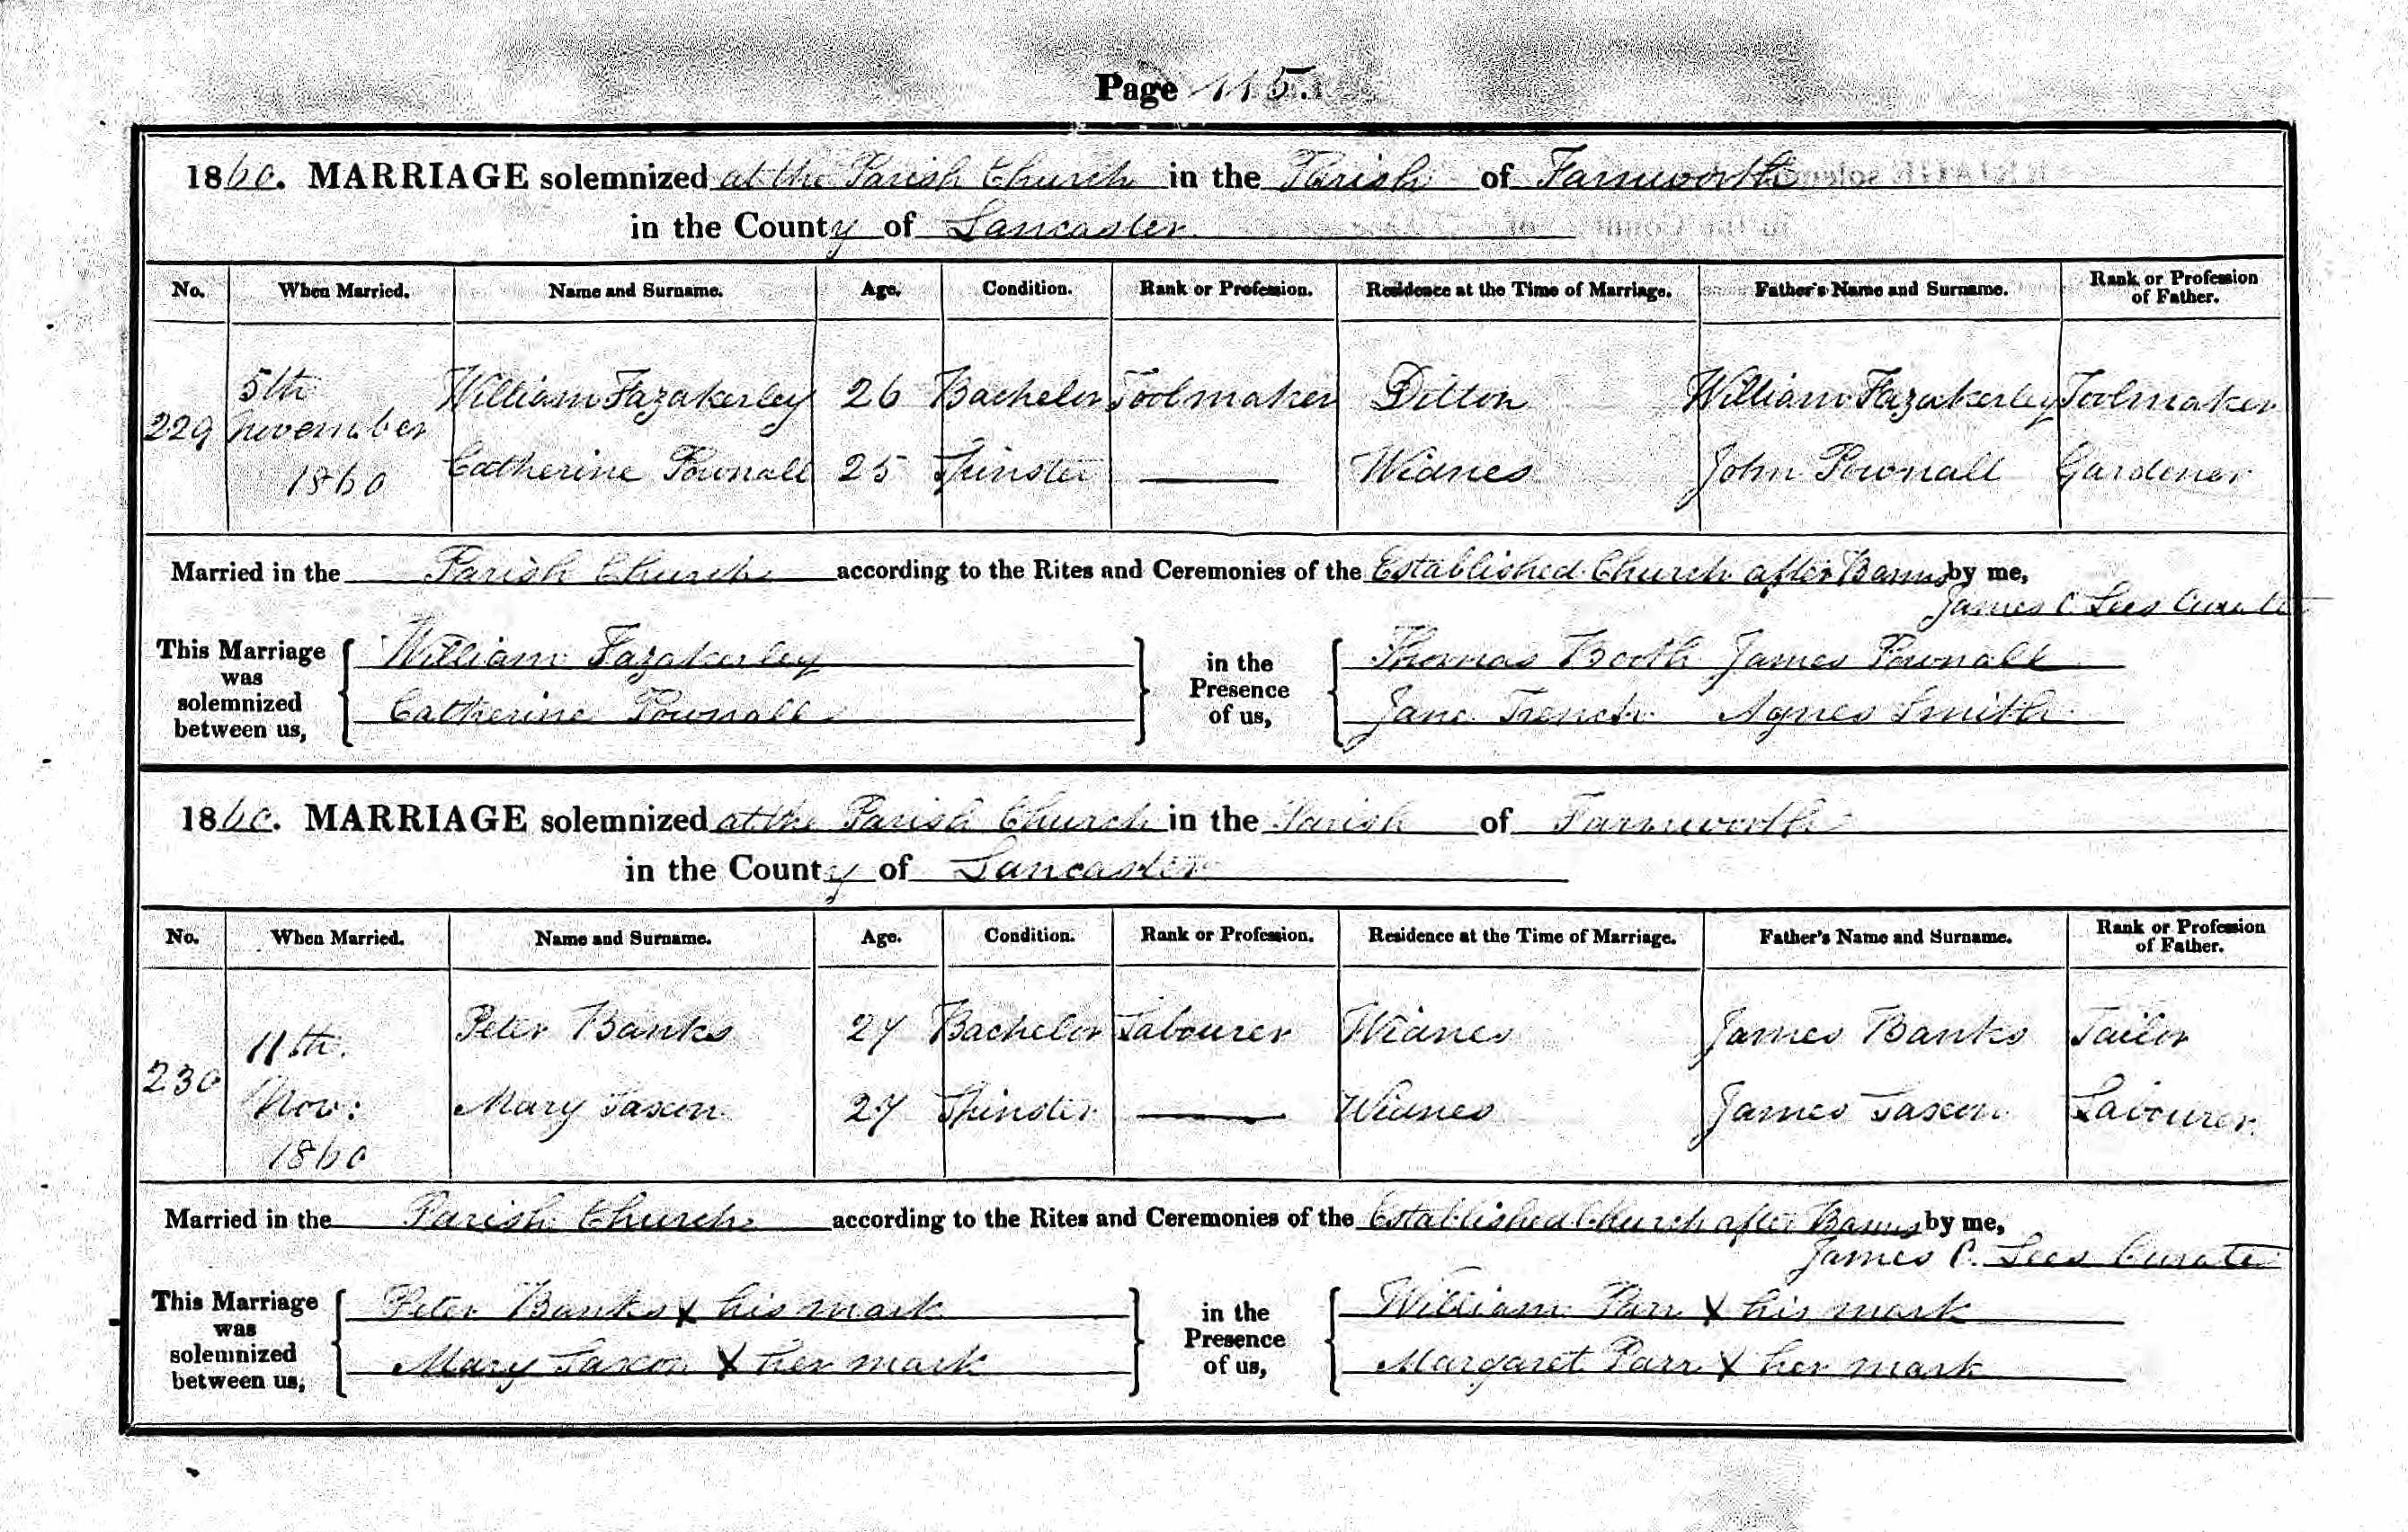 Page 115.
1860. MARRIAGE solemnized at the Parish Church in the Parish of Farnworth
in the County of Lancaster
No. When Married. Name and Surname. Age. Condition. Rank or Profession. Residence at the Time of Marriage. Father's Name and Surname. Rank or Profession of Father.
229 5th November 1860 William Fazakerley 26 Bachelor Toolmaker Ditton William Fazakerley Toolmaker
Catherine Pownall 25 Spinster Widnes John Pownall Gardener
Married in the Parish Church according to the Rites and Ceremonies of the Established Church after Banns by me,
James C Lees Curate
This Marriage was solemnized between us, William Fazakerley in the Presence of us, Thomas Booth James Pownall
Catherine Pownall Jane French Agnes Smith
1860. MARRIAGE solemnized at the Parish Church in the Parish of Farnworth
in the County of Lancaster
No. When Married. Name and Surname. Age. Condition. Rank or Profession. Residence at the Time of Marriage. Father's Name and Surname. Rank or Profession of Father.
230 11th Nov: 1860 Peter Banks 27 Bachelor Labourer Widnes James Banks Tailor
Mary Saxon 27 Spinster Widnes James Saxon Labourer
Married in the Parish Church according to the Rites and Ceremonies of the Established Church after Banns by me,
James C. Lees Curate
This Marriage was solemnized between us, Peter Banks X his mark in the Presence of us, William Parr X his mark
Mary Saxon X her mark Margaret Parr X her mark